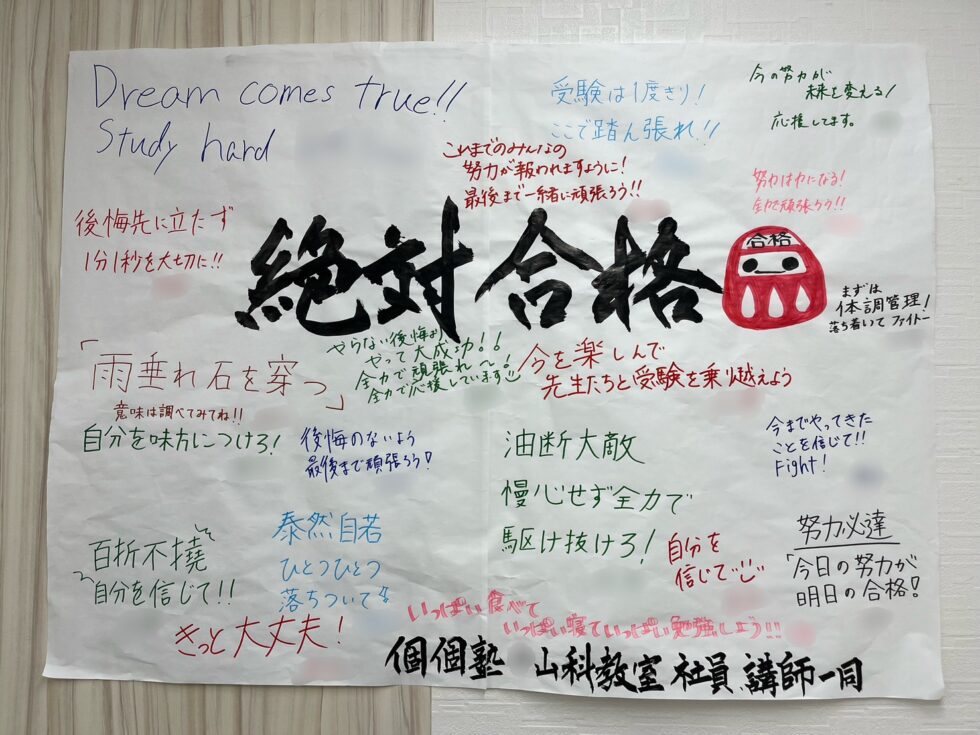 Dream comes true!!
Study hard
受験は1度きり!
ここで踏ん張れ!!
今の努力が
未来を変える!
応援してます。
これまでのみんなの
努力が報われますように!
最後まで一緒に頑張ろう!!
努力は力になる!
全力で頑張ろう!!
後悔先に立たず
1分1秒を大切に!!
絶対合格
合格
まずは
体調管理!
落ち着いてファイトー
「雨垂れ石を穿つ」
意味は調べてみてね!!
やらない後悔より
やって大成功!!
全力で頑張れ〜!
全力で応援しています
今を楽しんで
先生たちと受験を乗り越えよう
自分を味方につけろ!
後悔のないよう
最後まで頑張ろう!
油断大敵
慢心せず全力で
駆け抜けろ!
今までやってきた
ことを信じて!!
Fight!
百折不撓
自分を信じて!!
泰然自若
ひとつひとつ
落ちついて
自分を
信じて
努力必達
「今日の努力が
明日の合格!
きっと大丈夫!
いっぱい食べて
いっぱい寝ていっぱい勉強しよう!!
個個塾 山科教室 社員 講師一同